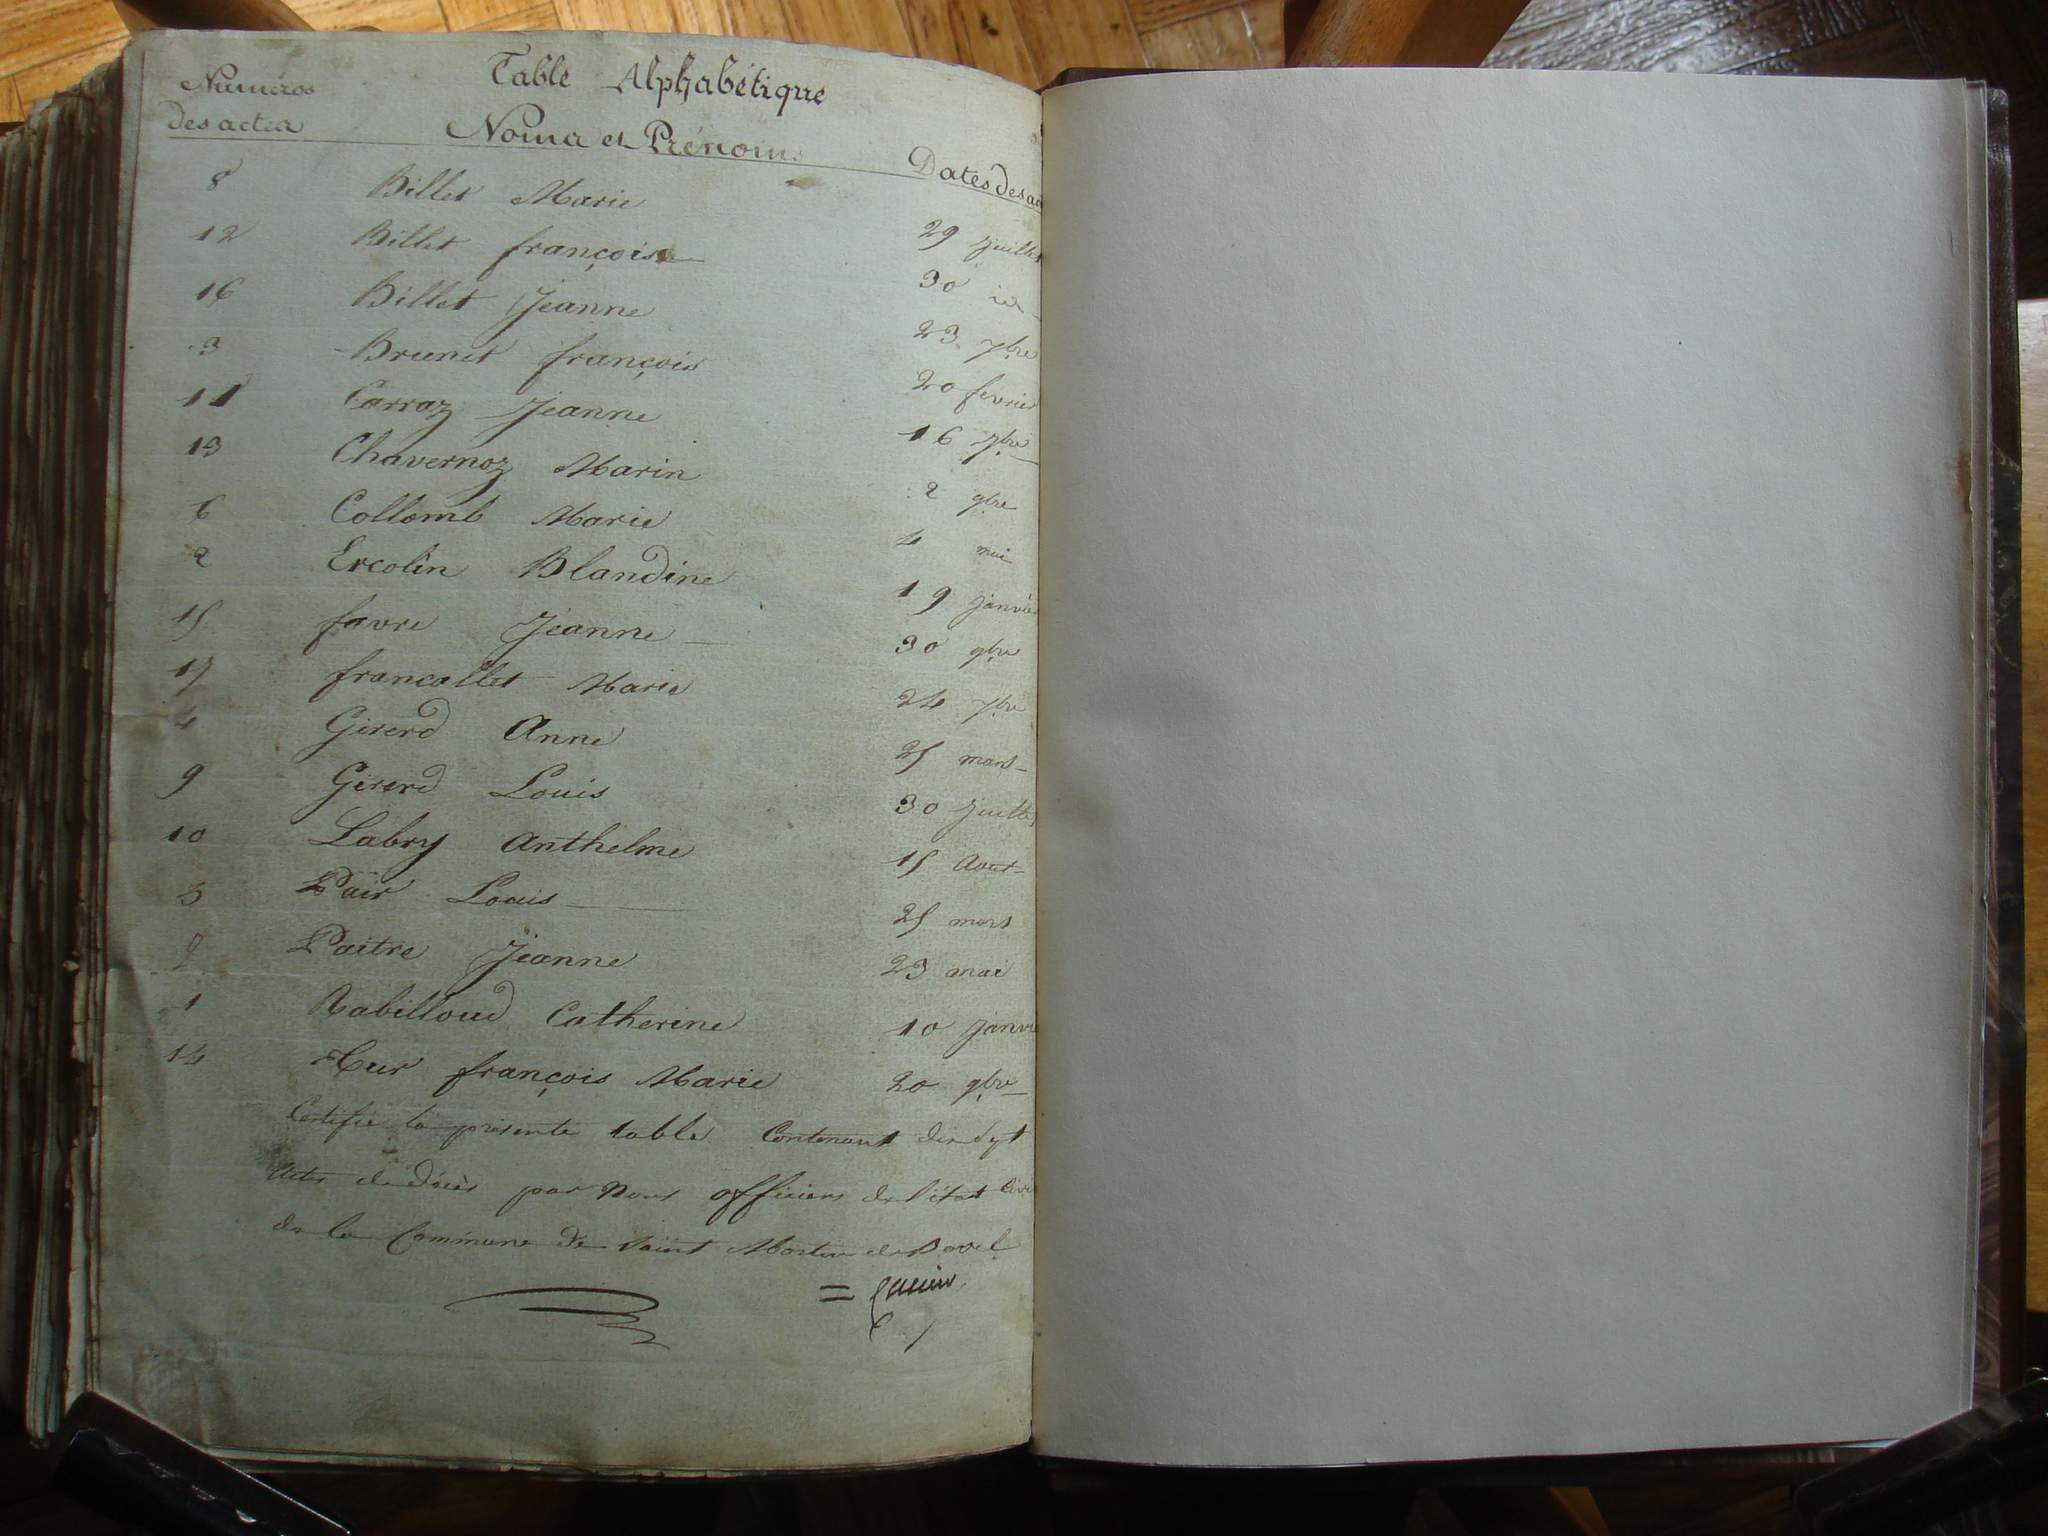 Table Alphabétique
Numéros
des actes Noms et Prénoms Dates des ac
8 Billet Marie 29 juillet
12 Billet françoise 30 id
16 Billet Jeanne 23 xbre
3 Brunet françois 20 fevrier
11 Carraz Jeanne 16 7bre
13 Chavernoz Marin 2 9bre
6 Collomb Marie 4 mai
2 Ercolin Blandine 19 janvier
15 favre Jeanne 30 9bre
17 francallet Marie 24 xbre
4 Girerd Anne 25 mars
9 Girerd Louis 30 juillet
10 Labry Anthelme 15 Aout
5 Pair Louis 25 mars
Paitre Jeanne 23 mai
1 Rabilloud Catherine 10 janvi
14 françois Marie 20 9bre
Certifie la présente table Contenant dix sept
Actes de décès par Nous officier de l'état Civi
de la Commune de Saint Martin de Bavel